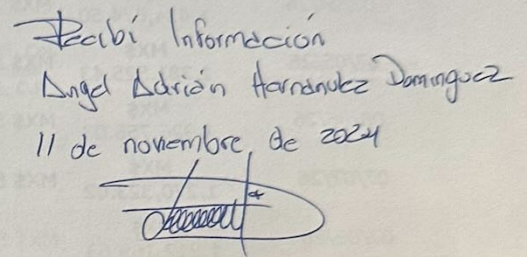 Recibí Información
Angel Adrián Hernández Dominguez
11 de noviembre de 2024